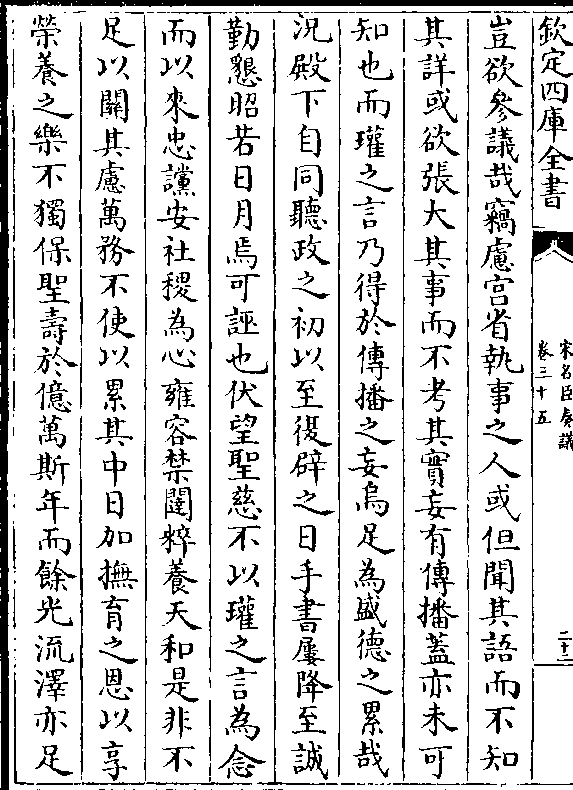 欽定四庫全書
宋名臣奏議
卷三十五
二十二
豈欲參議哉竊慮宫省執事之人或但聞其語而不知
其詳或欲張大其事而不考其實妄有傳播蓋亦未可
知也而瓘之言乃得於傳播之妄烏足為盛德之累哉
況殿下自同聽政之初以至復辟之日手書屢降至誠
勤懇昭若日月焉可誣也伏望聖慈不以瓘之言為念
而以來忠讜安社稷為心雍容禁闥粹養天和是非不
足以關其慮萬務不使以累其中日加撫育之恩以享
榮養之樂不獨保聖壽於億萬斯年而餘光流澤亦足